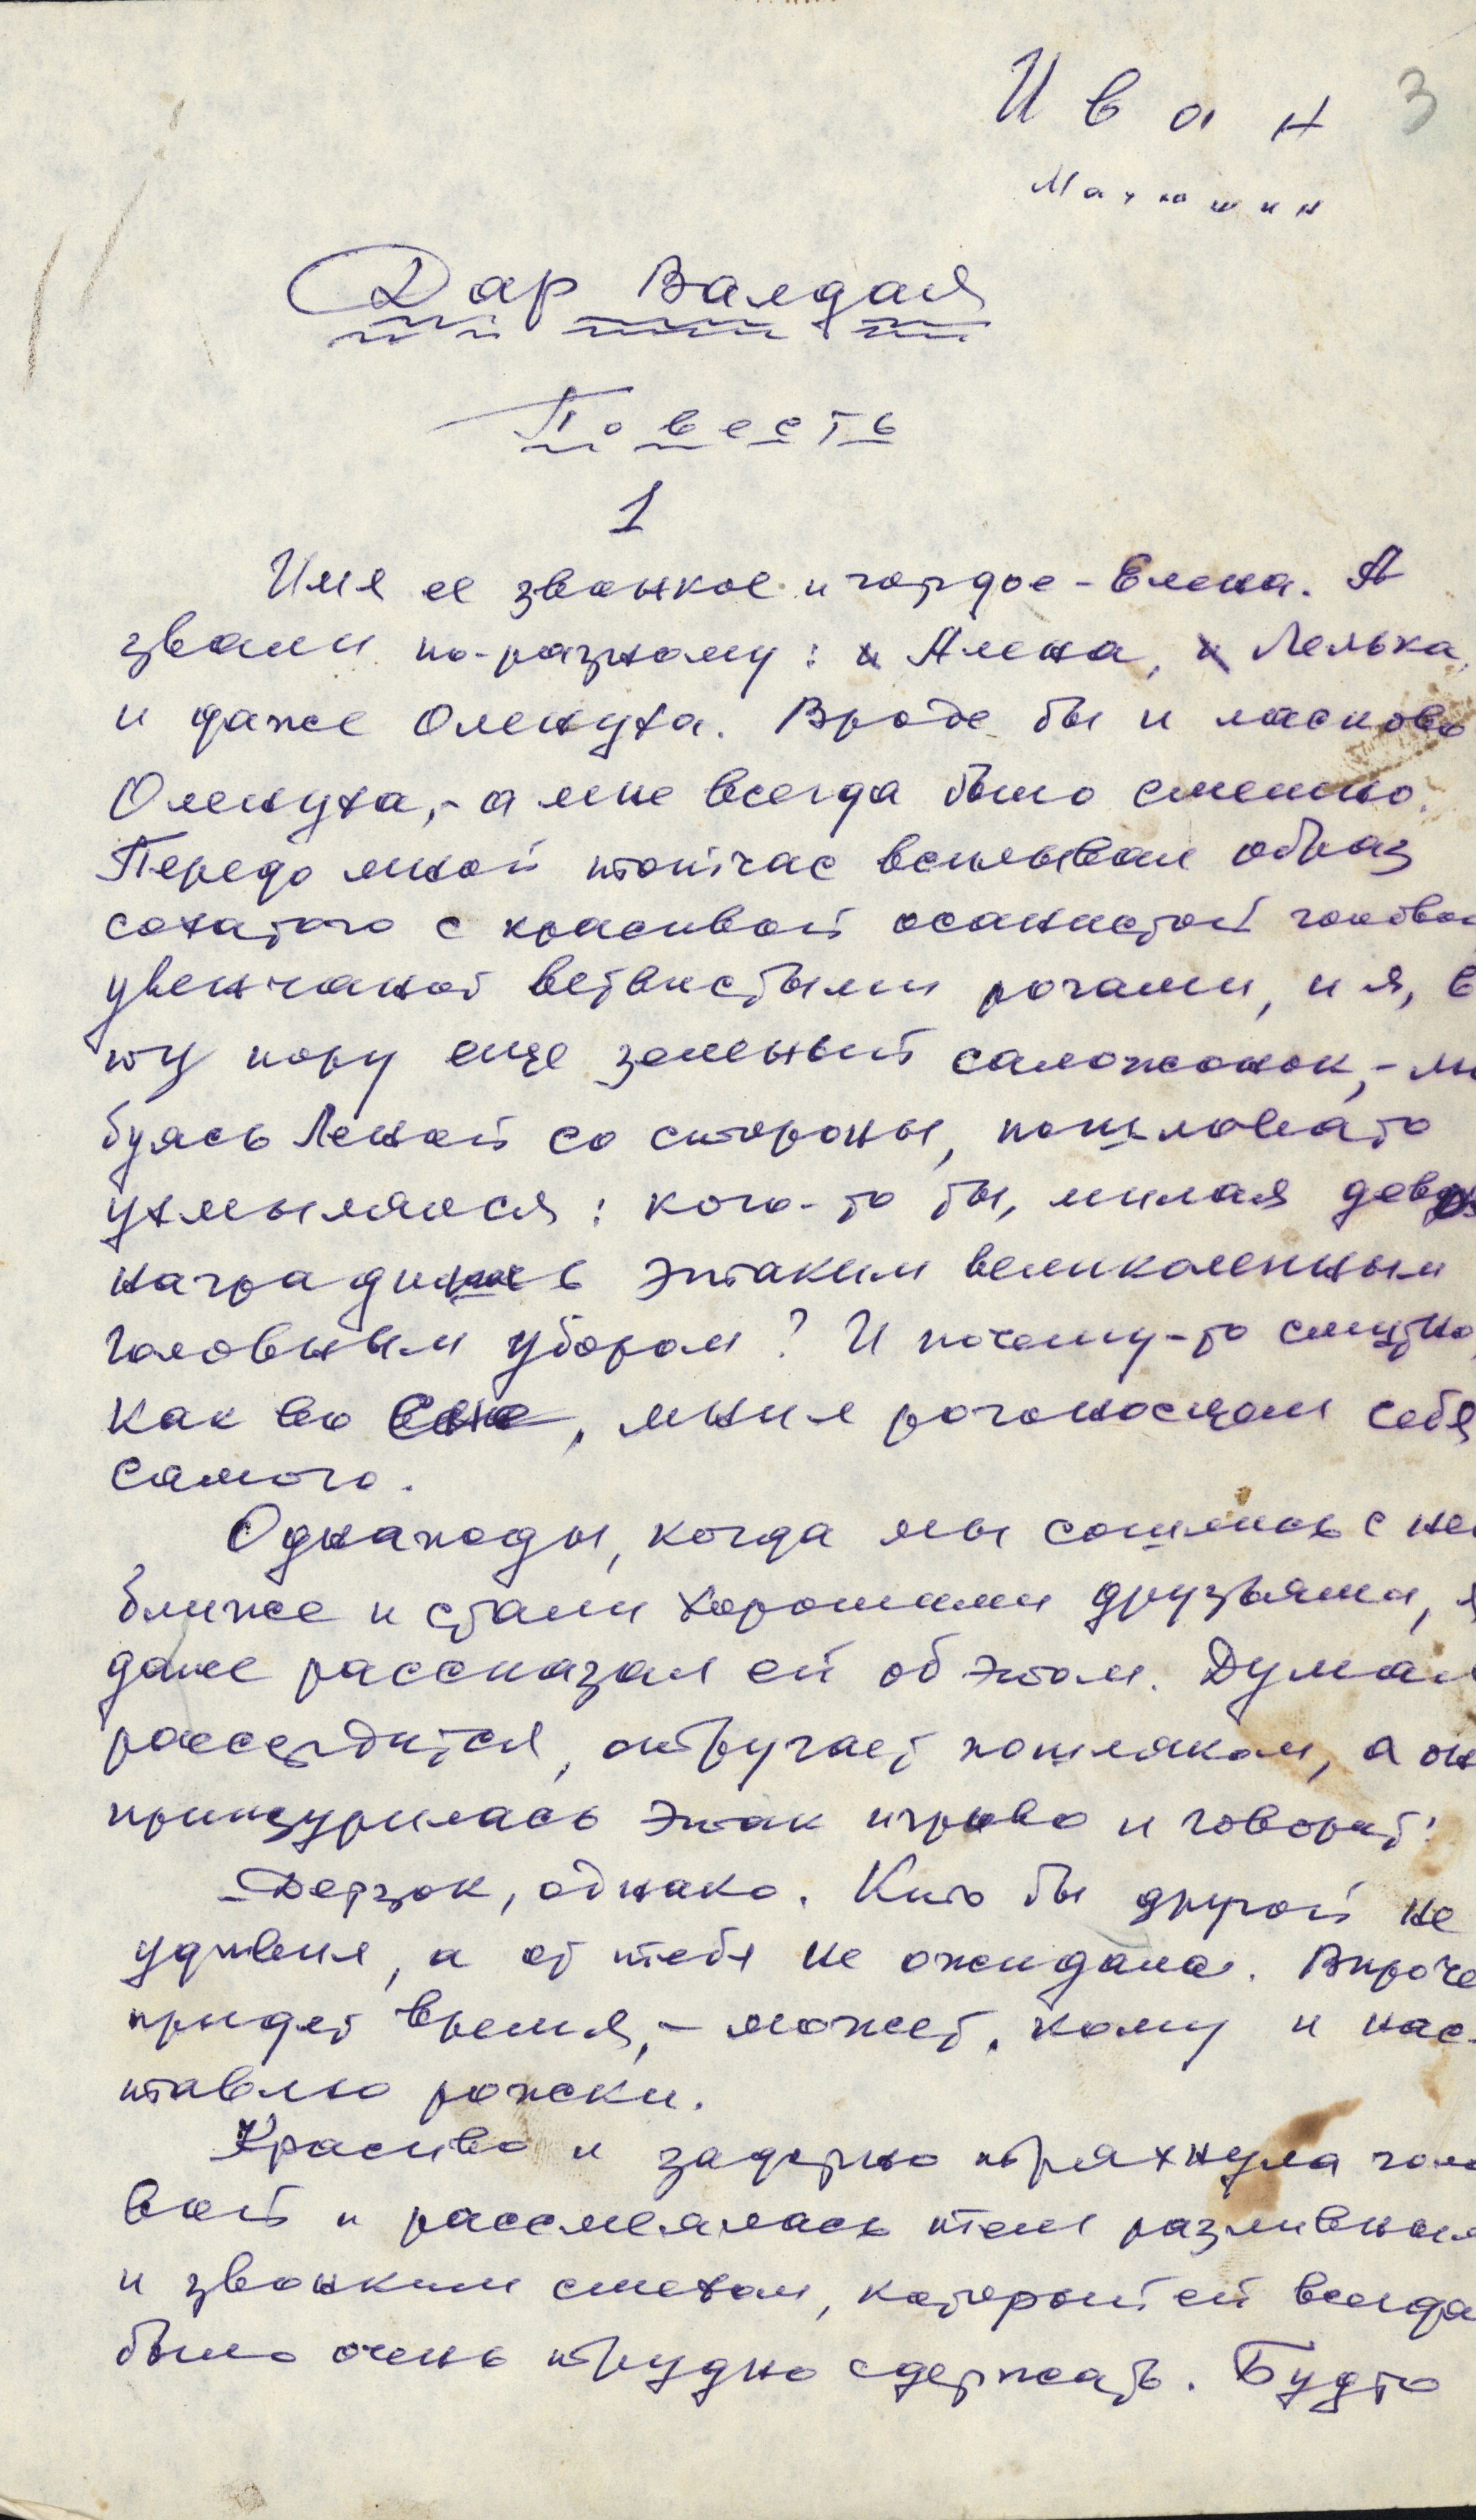 Иван 3
Матюшин
Дар Валдая
Повесть
1
Имя ее звонкое и гордое - Елена. А
звали по-разному: Алена, Лелька,
и даже Оленуха. Вроде бы и ласково
Оленуха, - а мне всегда было смешно.
Передо мной тотчас всплывал образ
сохатого с красивой осанистой голово
увенчаной ветвистыми рогами, и я, в
ту пору еще зеленый салажонок, - лю
буясь Леной со стороны, пошловато
ухмылялся: кого-то ты, милая
наградишь этаким великолепным
головным убором? И почему-то смутно,
как во сне, мнил рогоносцем себя
самого.
Однажды, когда мы сошлись с не
ближе и стали хорошими друзьями, я
даже рассказал ей об этом. Думал
рассердится, отругает пошляком, а он
прищурилась этак игриво и говорит:
- Дерзок, однако. Кто бы другой не
удивил, а от тебя не ожидала. Впроче
придет время, - может, кому и нас-
тавлю рожки.
Красиво и задорно тряхнула голо
вой и рассмеялась тем разливным
и звонким смехом, который ей всегда
было очень трудно сдержать. Будто